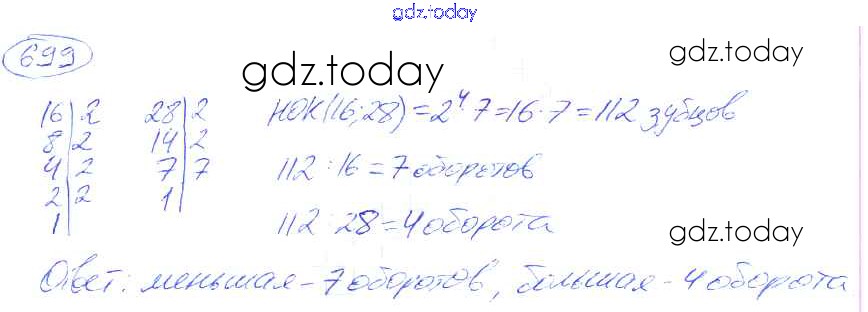 gdz.today
699
gdz.today
gdz.today
16|2 28|2 НОК(16;28)=2⁴·7=16·7=112 зубцов
8|2 14|2
4|2 7|7 112:16=7 оборотов
2|2 1|
1| 112:28=4 оборота
gdz.today
Ответ: меньшая-7 оборотов, большая-4 оборота